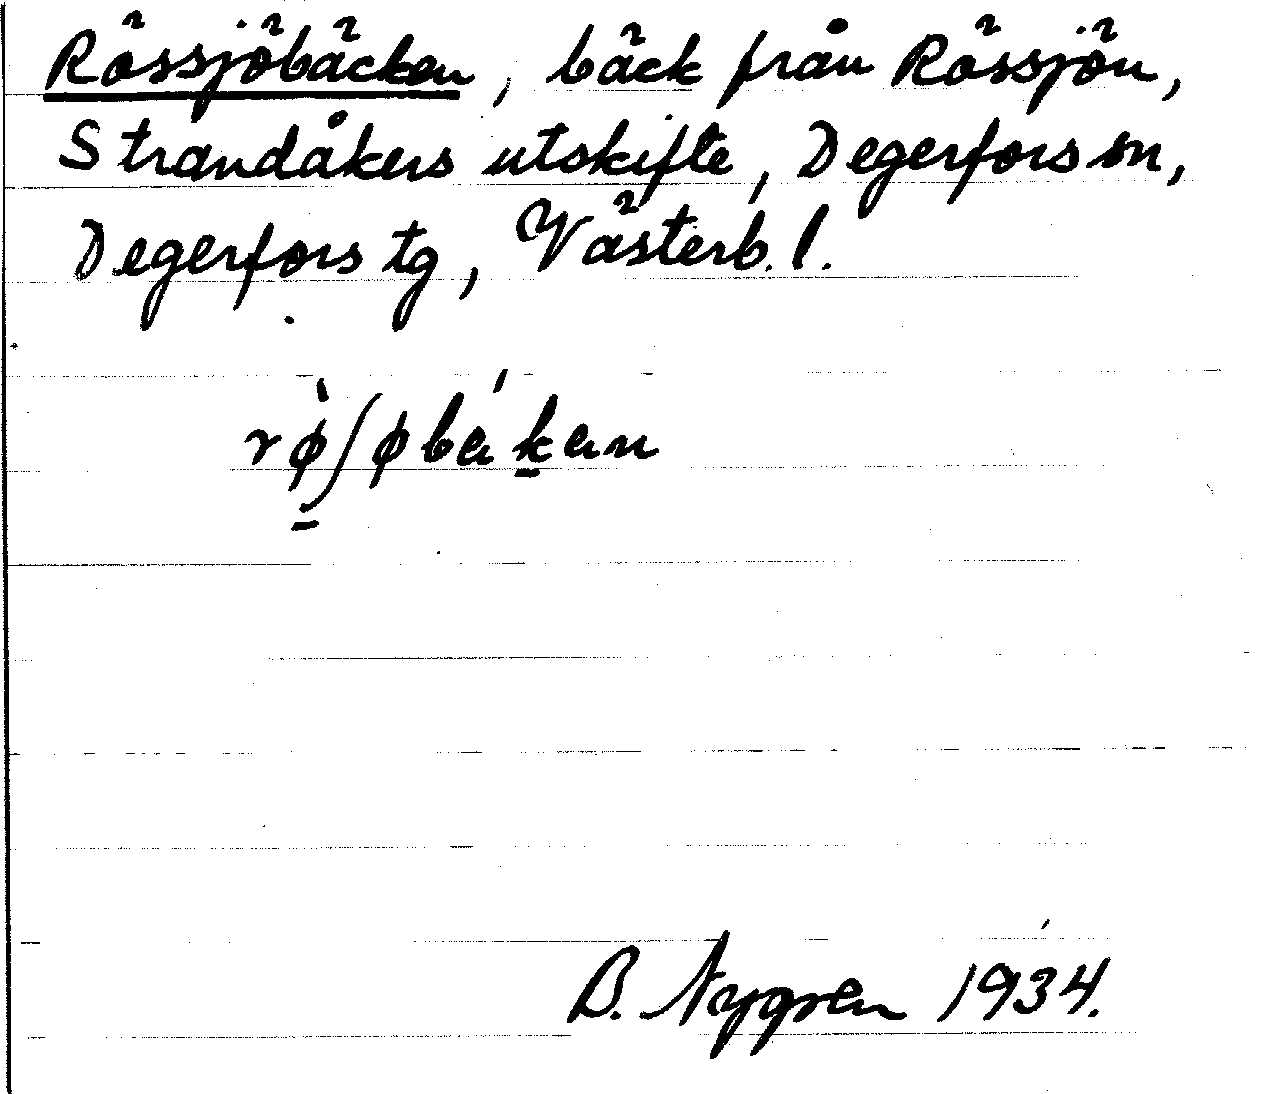 Rössjöbäcken, bäck från Rössjön,
Strandåkers utskifte, Degerfors sn,
Degerfors tg, Västerb. l.
rø̀ʃøbákan
B. Nygren 1934.